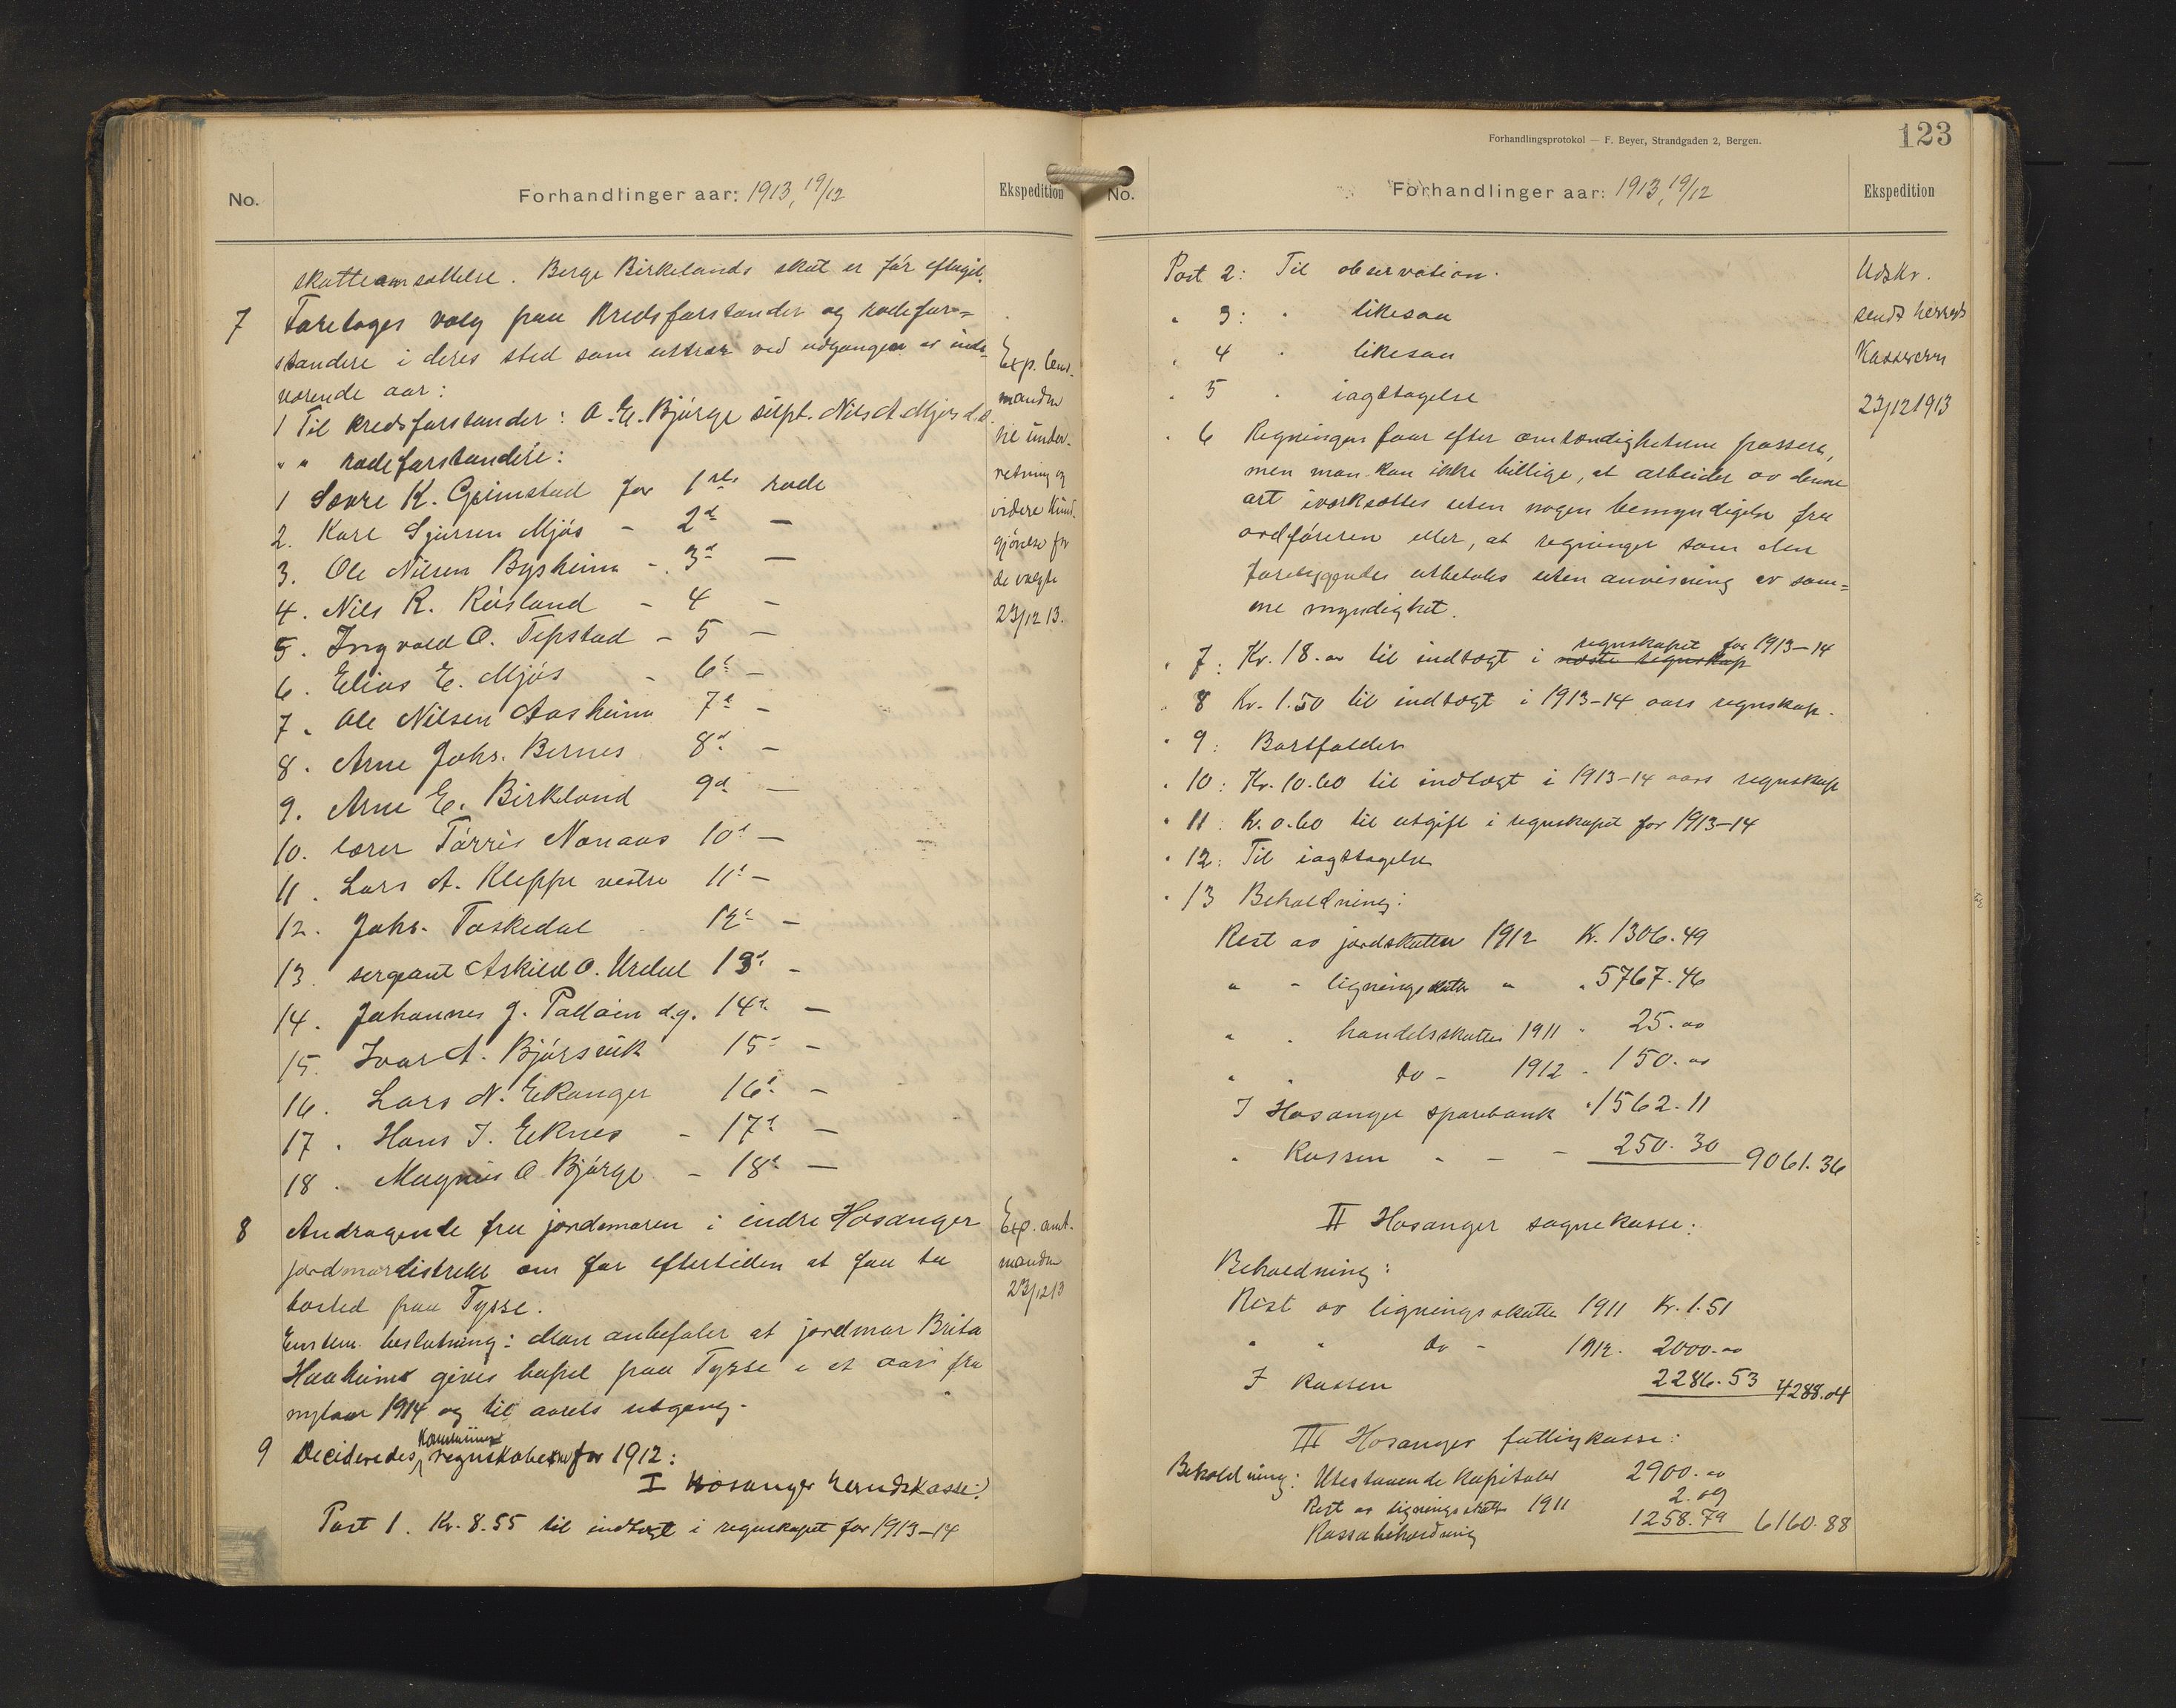 No.
Forhandlinger aar: 1913, 19/12
Ekspedition
skatteansættelse. Berge Birkelands skat er før eftergit.
7 Foretoges valg paa kredsforstander og rodefor=
standere i deres sted som uttræ ved utgangen av inde-
værende aar:
1 Til kredsforstander: O. E. Bjørge supl. Nils A. Mjøs d.e.
" " rodeforstandere:
1 Sævre K. Grimstad for 1ste rode
2. Karl Sjursen Mjøs - 2d —
3. Ole Nilsen Bysheim - 3d —
4. Nils R. Røsland - 4 -
5. Ingvald O. Tepstad - 5 —
6. Elias E. Mjøs - 6t —
7. Ole Nilsen Aasheim 7d -
8. Arne Johs. Bernes 8d —
9. Arne E. Birkeland 9d —
10. lærer Tørris Nonaas 10d —
11. Lars A. Kleppe vestre 11t —
12. Johs. Toskedal - 12t —
13. sergeant Askild O. Urdal 13d -
14. Johannes J. Padøin d.y. 14d —
15. Ivar A. Bjørsvik 15d —
16. Lars N. Eikanger 16d —
17. Hans J. Eknes - 17d —
18. Magnus O Bjørge - 18d —
8 Andragende fra jordmoren i indre Hosanger
jordmordistrikt om for eftertiden at faa ta
bosted paa Tysse.
Enstem. beslutning: Man anbefaler at jordmor Brita
Haaheim gives bopel paa Tysse i et aar fra
nytaar 1914 og til aarets utgang.
9 Decideredes kommune regnskaberne for 1912:
I Hosanger herredskasse:
Post 1. Kr. 8.55 til indtægt i regnskapet for 1913-14
Exp. lens-
manden
til under-
retning og
videre kund-
gjørelse for
de valgte
23/12 13.
Exp. amt-
manden
23/12 13
Forhandlingsprotokol — F. Beyer, Strandgaden 2, Bergen.
123
No.
Forhandlinger aar: 1913, 19/12
Ekspedition
Post 2: Til observation.
" 3: " likesaa
" 4 " likesaa
" 5 " iagttagelse
" 6 Regningen faar efter omstændighetene passere,
men man kan ikke billige, at arbeider av denne
art iverksættes uten nogen bemyndigelse fra
ordføreren eller, at regninger som den
foreliggende utbetales uten anvisning av sam=
me myndighet.
" 7: Kr. 18.00 til indtægt i næste regnskap regnskapet for 1913-14
" 8 Kr. 1.50 til indtægt i 1913-14 aars regnskap.
" 9: Bortfalder
" 10: Kr. 10.60 til indtægt i 1913-14 aars regnskap
" 11: Kr. 0.60 til utgift i regnskapet for 1913-14
" 12: Til iagttagelse
" 13 Beholdning:
Rest av jordskatten 1912 Kr. 1306.49
" - ligningsskatten " " 5767.46
" " handelsskatten 1911 " 25.00
" " do - 1912 - 150.00
I Hosanger sparebank " 1562.11
" Kassen " - - 250.30 9061.36
II Hosanger sognekasse:
Beholdning:
Rest av ligningsskatten 1911 Kr. 1.51
" " do - 1912. 2000.00
I kassen 2286.53 4288.04
III Hosanger fattigkasse:
Beholdning: Utestaaende kapitaler 2900.00
Rest av ligningsskatten 1911 2.09
Kassabeholdning 1258.79 6160.88
Udskr.
sendt herreds
Kasserern
23/12 1913